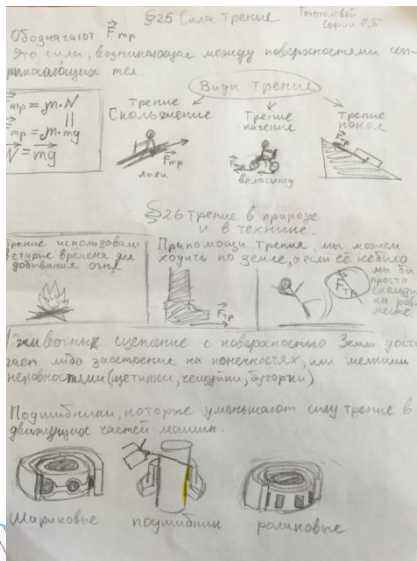 §25 Сила трения
Софии 7"Б"
Обозначают F тр
Это сила, возникающая между поверхностями соп-
рикасающихся тел.
Виды трения
Fтр = μ·N
Fтр = μ·mg
N = mg
Трение
Скольжение
Fтр
лыжи
Трение
качение
Fтр
велосипед
Трение
покоя
Fтр
§26 Трение в природе
и в технике.
Трение использовали
в старые времена для
добывания огня
При помощи трения, мы можем
ходить по земле, а если её небыло
мы бы
просто
скользи
на ров
месте
Fтр
Fтр
У животных сцепление с поверхностью Земли дости
гает либо заострение на конечностях, или мелкими
неровностями (щетинки, чешуйки, бугорки)
Подшибники, которые уменьшают силу трение в
движущихся частей машин.
Шариковые
подшибник
роликовые